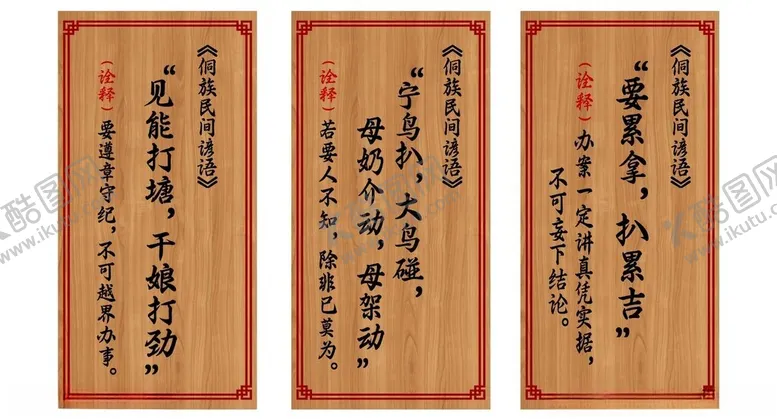 《侗族民间谚语》
“见能打塘，干娘打劲”
（诠释）要遵章守纪，不可越界办事。
《侗族民间谚语》
“宁鸟扒，大鸟碰，
母奶介动，母架动”
（诠释）若要人不知 除非已莫为。
《侗族民间谚语》
“要累拿，扒累吉”
（诠释）办案一定讲真凭实据，
不可妄下结论。